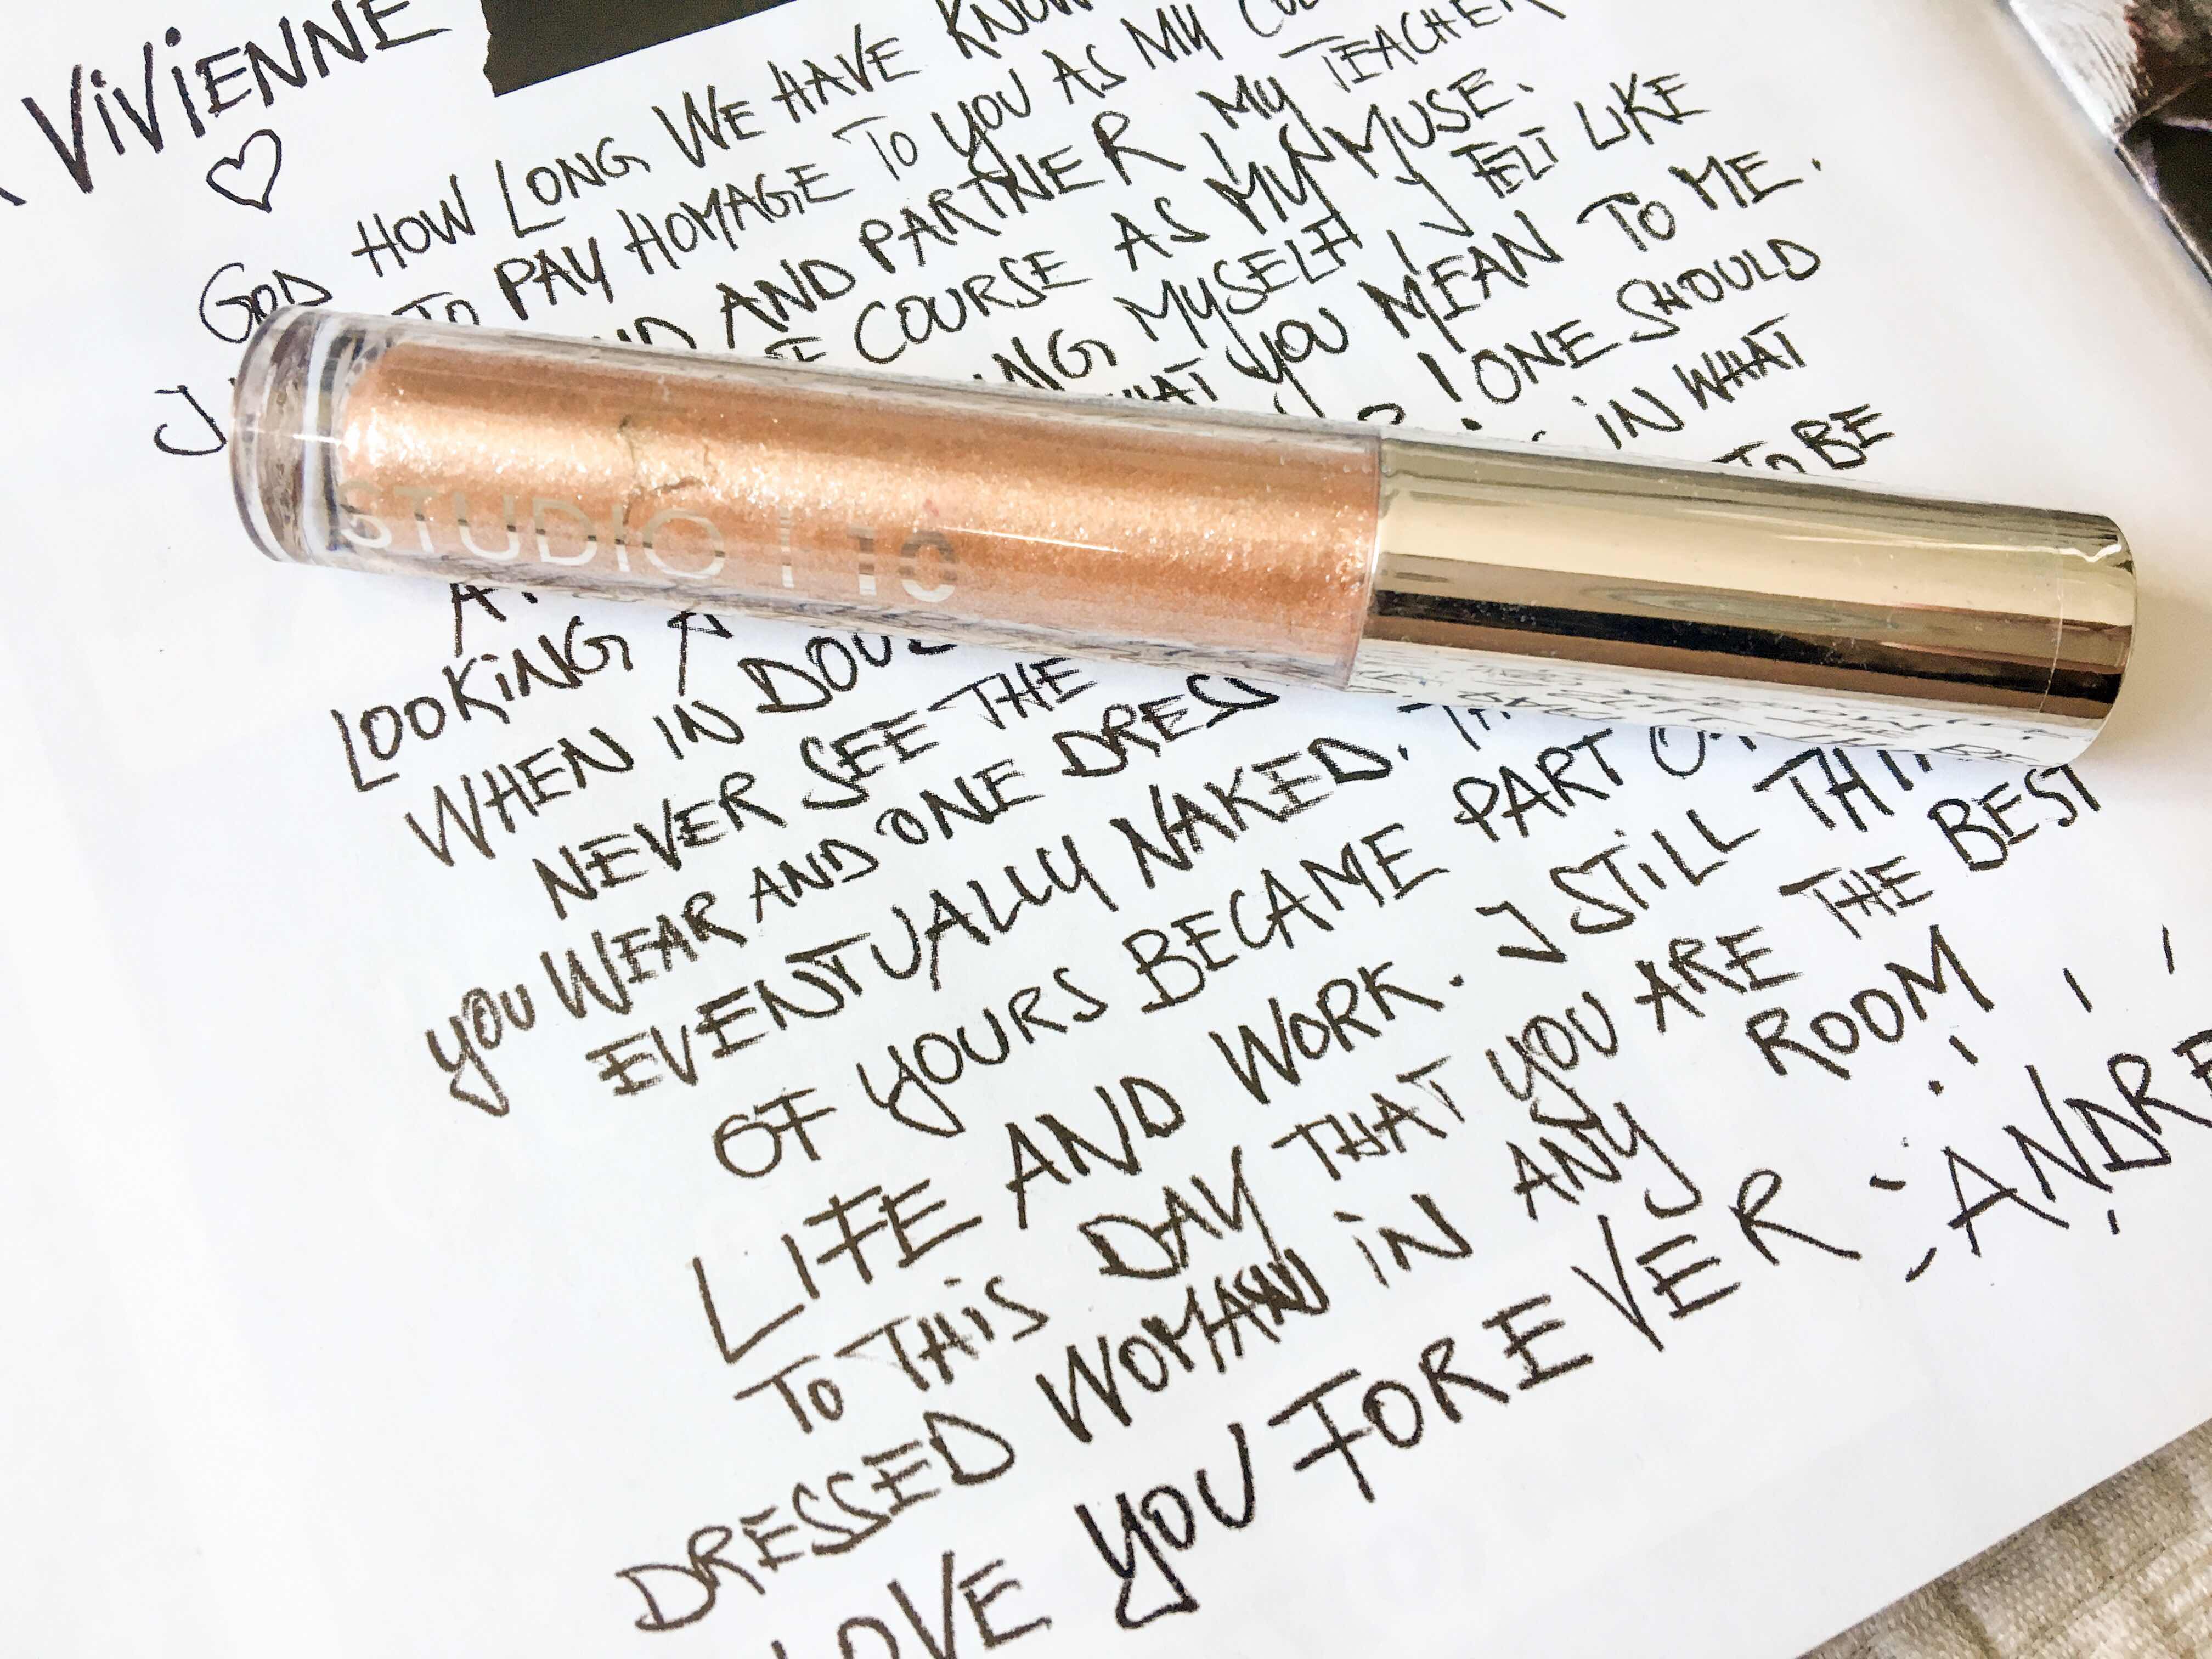 VIVIENNE
GOD HOW LONG WE HAVE
TO PAY HOMAGE TO YOU AS MY
AND PARTNER, MY TEACHER
COURSE AS MY MUSE.
MYSELF, I FELT LIKE
YOU MEAN TO ME.
! ONE SHOULD
IN WHAT
TO BE
STUDIO | 10
LOOKING
WHEN IN
NEVER SEE THE
YOU WEAR AND ONE DRESS
EVENTUALLY NAKED.
OF YOURS BECAME PART
LIFE AND WORK. I STILL
TO THIS DAY THAT YOU ARE THE BEST
DRESSED WOMAN IN ANY ROOM
LOVE YOU FOREVER